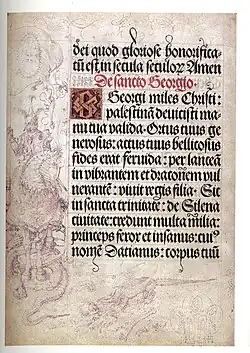 dei quod gloriose honorifica-
tū est in secula seculorū Amen
De sancto Georgio.
Georgi miles Christi:
palestinā deuicisti ma-
nu tua valida. Ortus tuus ge
nerosus: actus tuus bellicosus
fides erat feruida: per lanceā
in vibrantem et draconem vul
nerantē: viuit regis filia. Sit
in sancta trinitate: de Silena
ciuitate: credunt multa milia:
princeps ferox et insanus: cuiꝰ
nomē Dacianus: corpus tuū